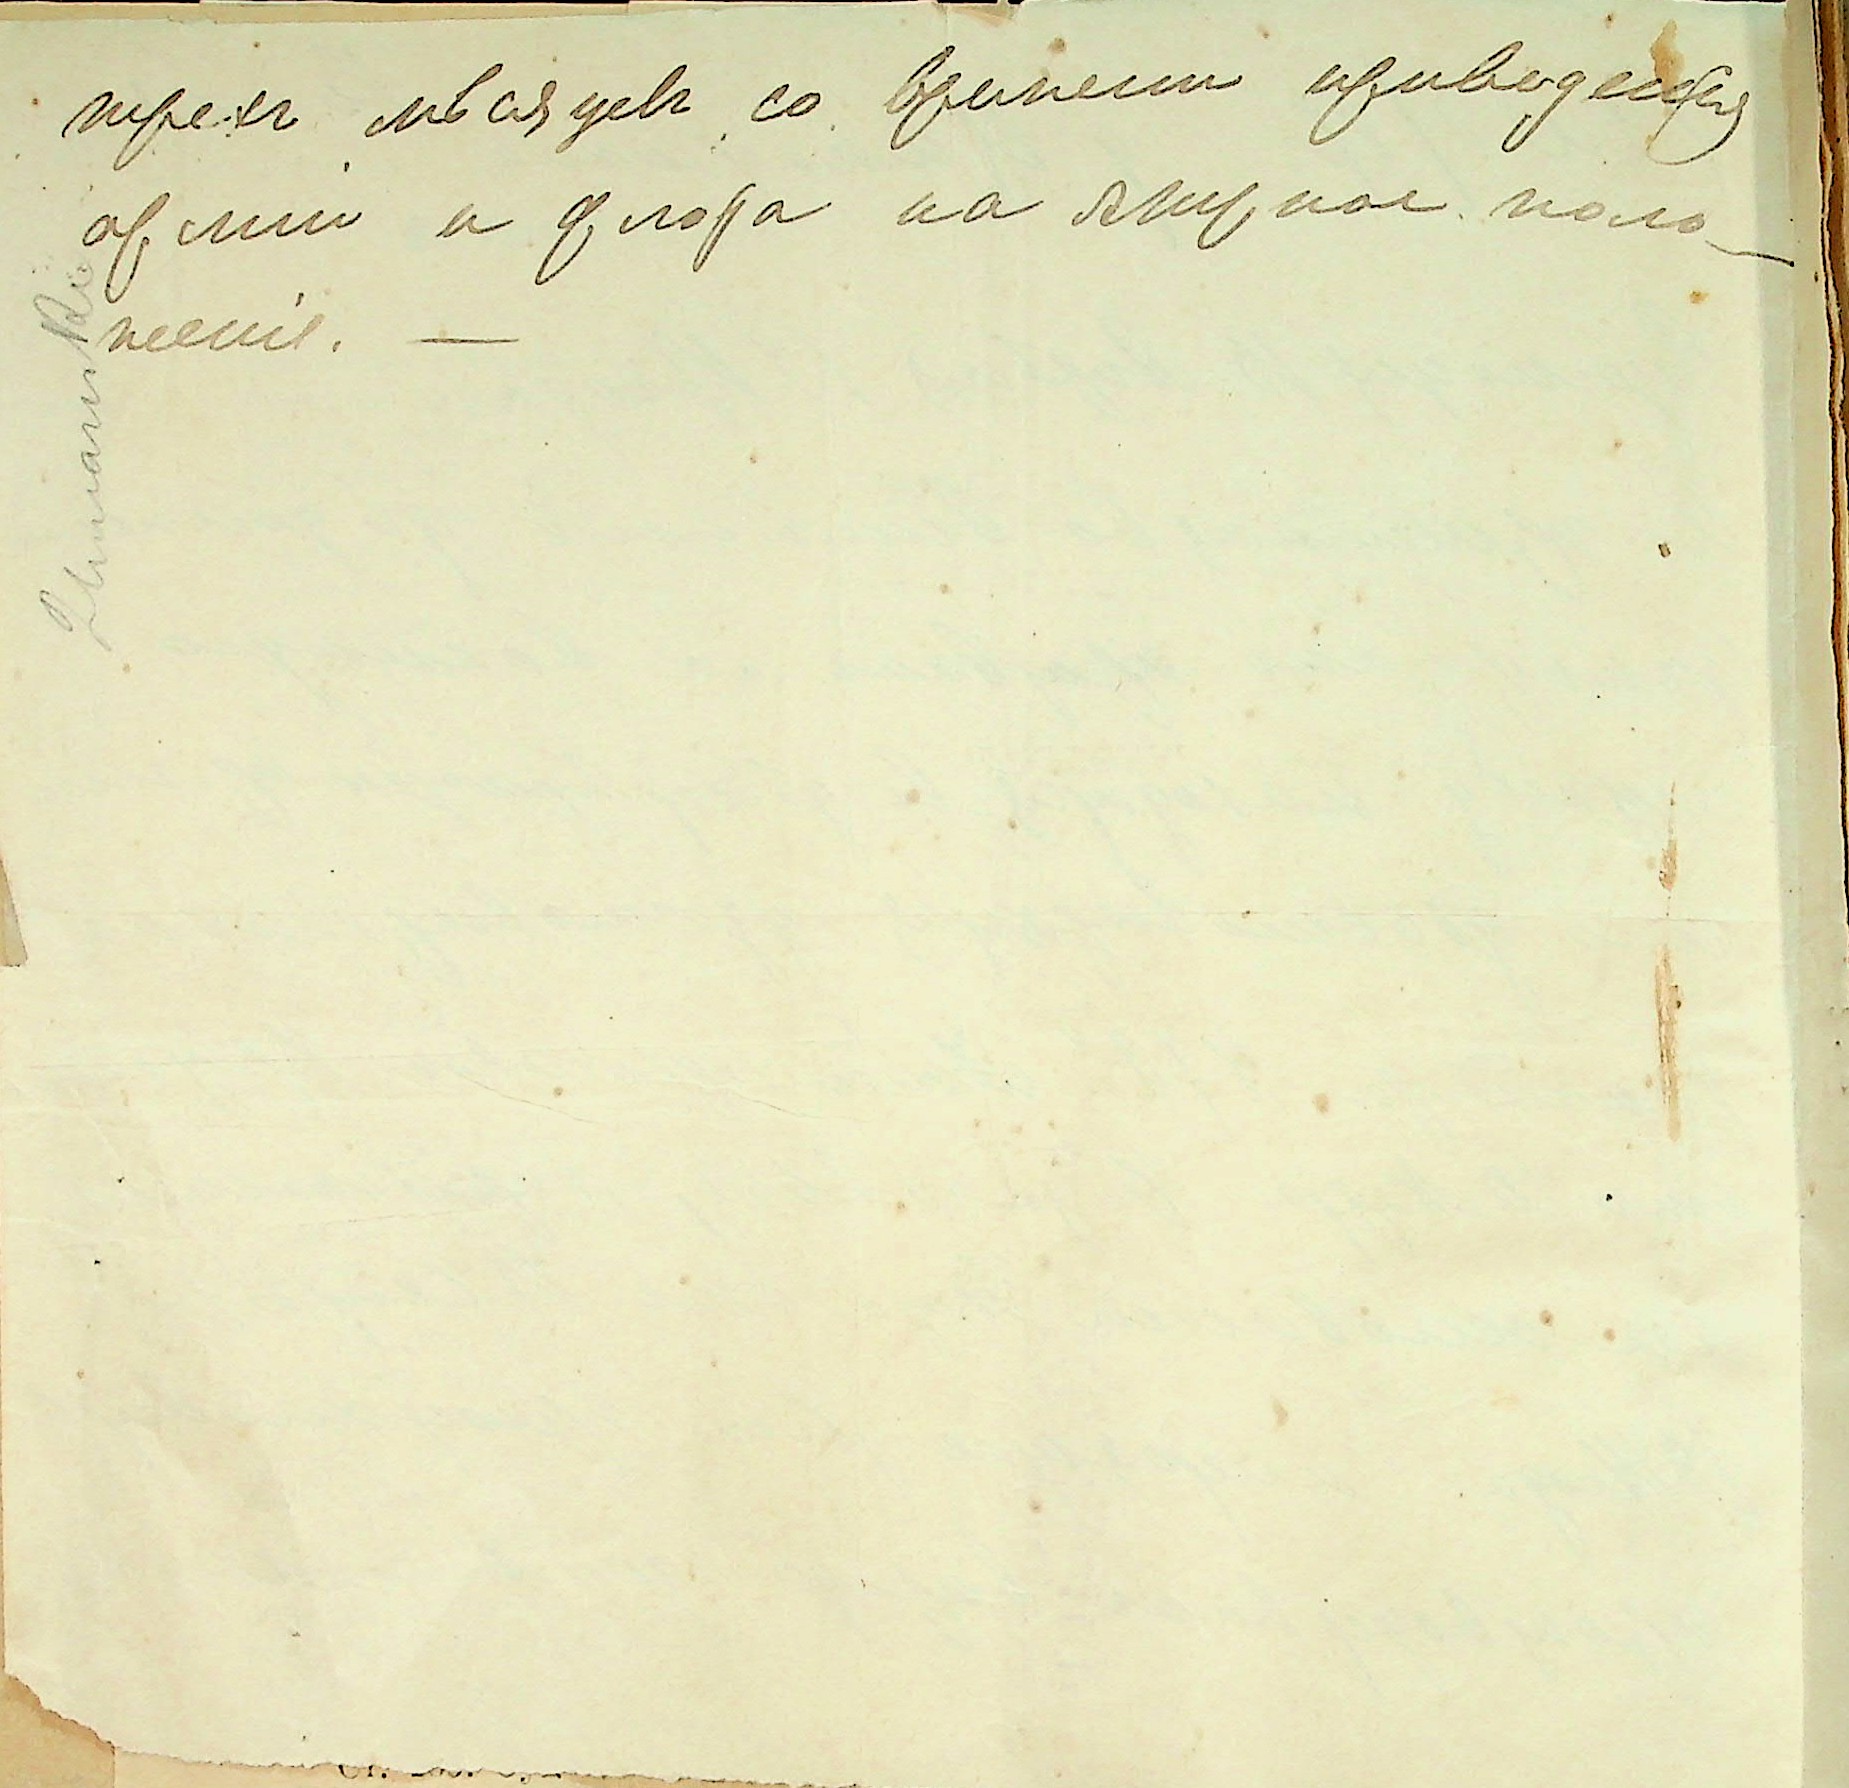 трехъ мѣсяцевъ со времени приведенія
арміи и флота на мирное поло-
женіе. —